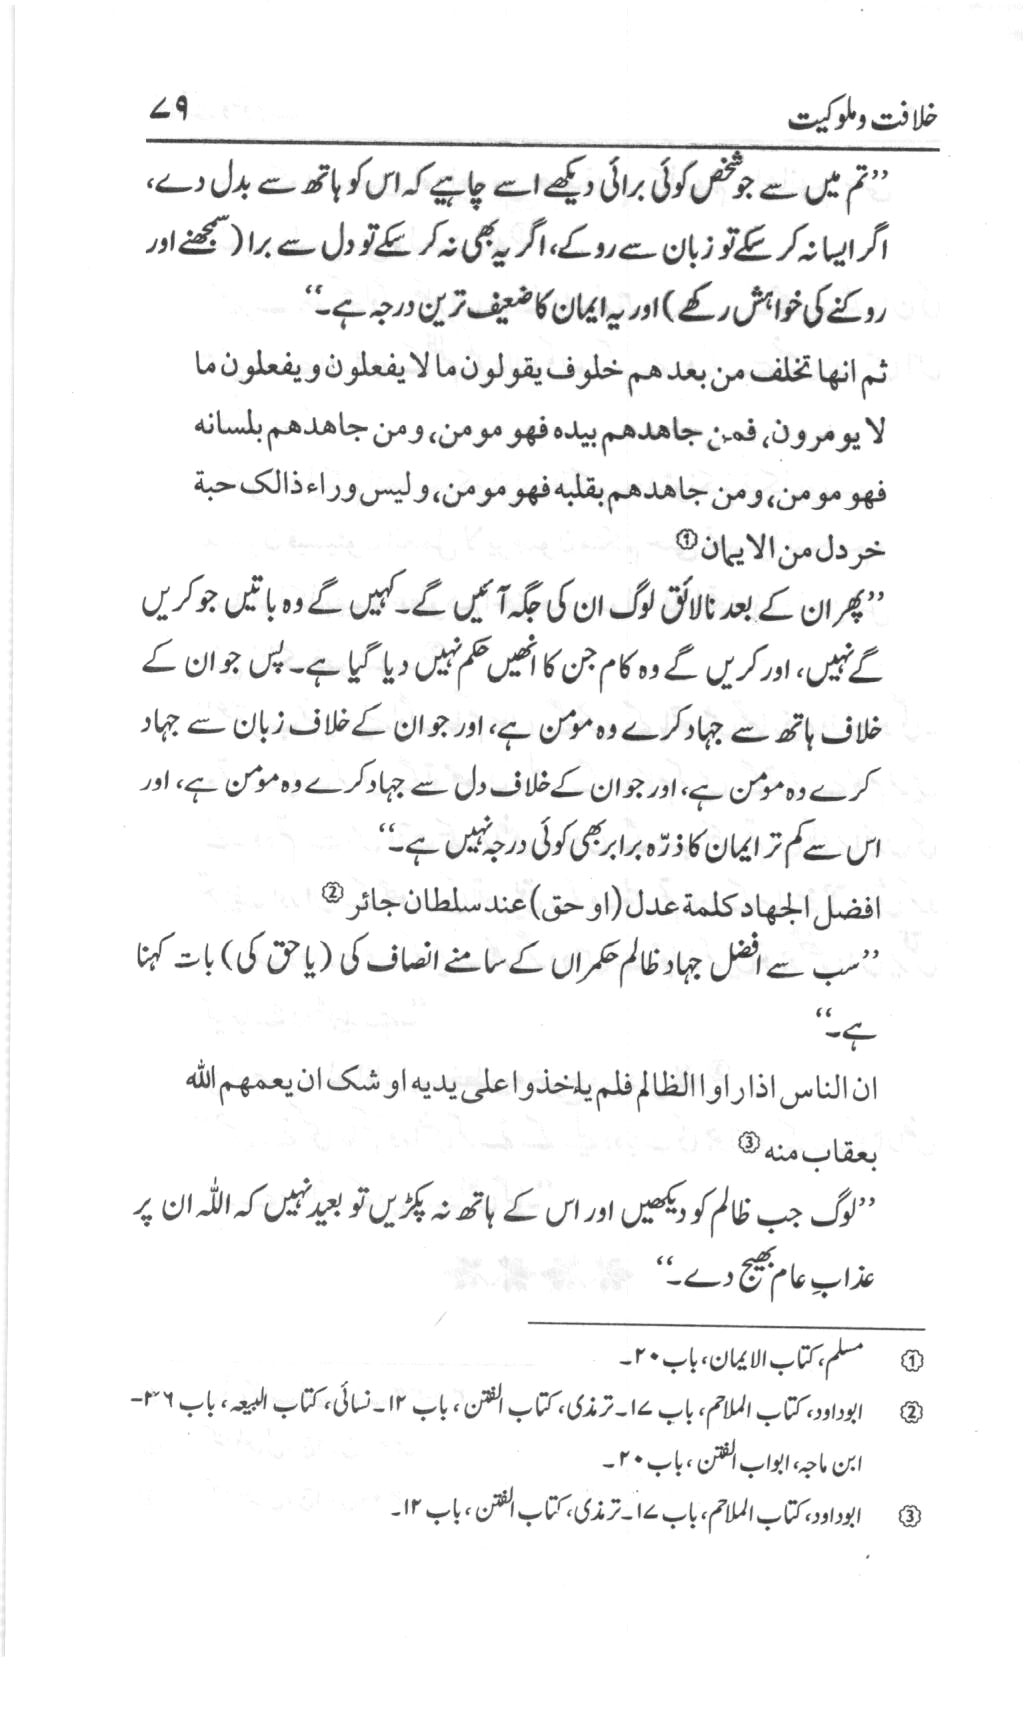 خلافت و ملوکیت ۷۹
’’تم میں سے جو شخص کوئی برائی دیکھے اسے چاہیے کہ اس کو ہاتھ سے بدل دے،
اگر ایسا نہ کر سکے تو زبان سے روکے، اگر یہ بھی نہ کر سکے تو دل سے برا (سمجھنے اور
روکنے کی خواہش رکھے) اور یہ ایمان کا ضعیف ترین درجہ ہے۔‘‘
ثم انها تخلف من بعد هم خلوف يقولون ما لا يفعلون و يفعلون ما
لا يومرون، فمن جاهدهم بيده فهو مومن، ومن جاهدهم بلسانه
فهو مومن، ومن جاهدهم بقلبه فهو مومن، وليس وراء ذالک حبة
خردل من الايمان ①
’’پھر ان کے بعد نالائق لوگ ان کی جگہ آئیں گے۔ کہیں گے وہ باتیں جو کریں
گے نہیں، اور کریں گے وہ کام جن کا انھیں حکم نہیں دیا گیا ہے۔ پس جو ان کے
خلاف ہاتھ سے جہاد کرے وہ مؤمن ہے، اور جو ان کے خلاف زبان سے جہاد
کرے وہ مؤمن ہے، اور جو ان کے خلاف دل سے جہاد کرے وہ مؤمن ہے، اور
اس سے کم تر ایمان کا ذرّہ برابر بھی کوئی درجہ نہیں ہے۔‘‘
افضل الجهاد کلمة عدل (او حق) عند سلطان جائر ②
’’سب سے افضل جہاد ظالم حکمراں کے سامنے انصاف کی (یا حق کی) بات کہنا
ہے۔‘‘
ان الناس اذا راوا الظالم فلم ياخذوا على يديه او شک ان يعمهم الله
بعقاب منه ③
’’لوگ جب ظالم کو دیکھیں اور اس کے ہاتھ نہ پکڑیں تو بعید نہیں کہ اللہ ان پر
عذابِ عام بھیج دے۔‘‘
① مسلم، کتاب الایمان، باب ۲۰۔
② ابوداود، کتاب الملاحم، باب ۱۷۔ ترمذی، کتاب الفتن، باب ۱۲۔ نسائی، کتاب البیعہ، باب ۳۶-
ابن ماجہ، ابواب الفتن، باب ۲۰۔
③ ابوداود، کتاب الملاحم، باب ۱۷۔ ترمذی، کتاب الفتن، باب ۱۲۔